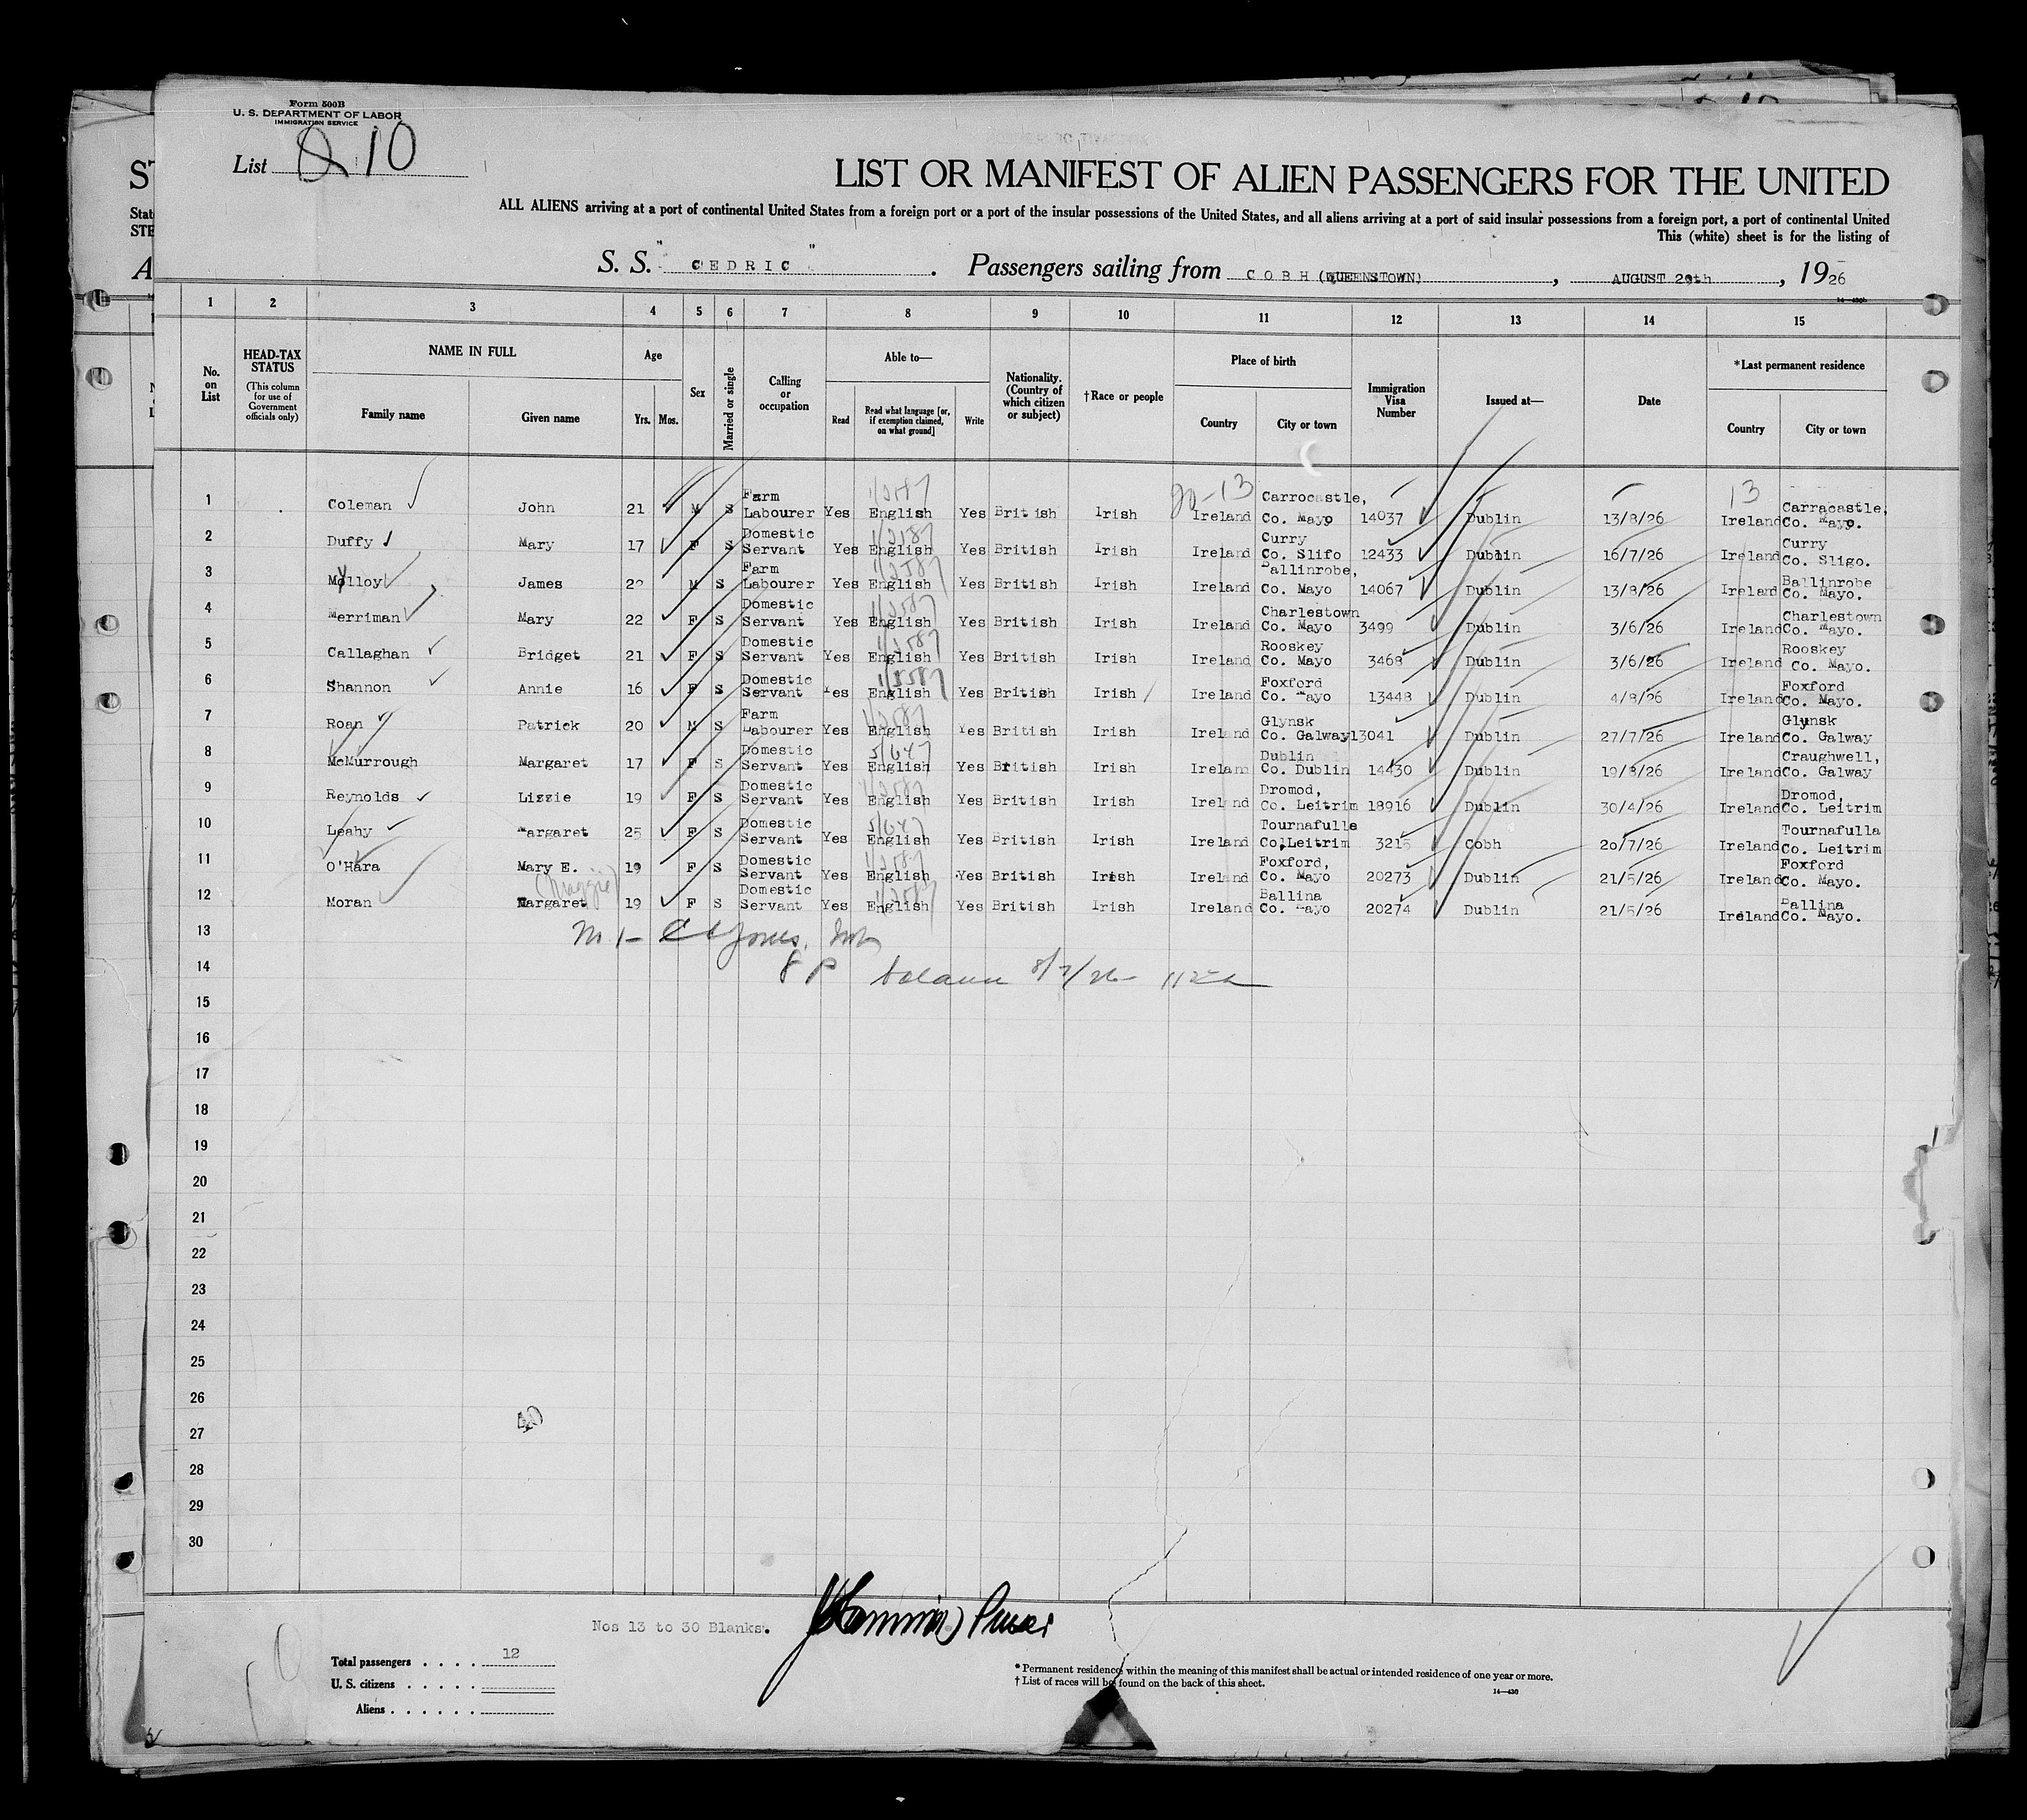 Form 500B
U. S. DEPARTMENT OF LABOR
IMMIGRATION SERVICE
List 10
LIST OR MANIFEST OF ALIEN PASSENGERS FOR THE UNITED
ALL ALIENS arriving at a port of continental United States from a foreign port or a port of the insular possessions of the United States, and all aliens arriving at a port of said insular possessions from a foreign port, a port of continental United
This (white) sheet is for the listing of
S. S. "CEDRIC". Passengers sailing from COBH (QUEENSTOWN), AUGUST 29th, 1926
1 2 3 4 5 6 7 8 9 10 11 12 13 14 15
No. on List
HEAD-TAX STATUS
(This column for use of Government officials only)
NAME IN FULL
Family name Given name
Age
Yrs. Mos.
Sex
Married or single
Calling or occupation
Able to—
Read
Read what language [or, if exemption claimed, on what ground]
Write
Nationality. (Country of which citizen or subject)
†Race or people
Place of birth
Country City or town
Immigration Visa Number
Issued at—
Date
*Last permanent residence
Country City or town
20-13 13
1 Coleman John 21 M S Farm Labourer Yes English Yes British Irish Ireland Carrocastle, Co. Mayo 14037 Dublin 13/8/26 Ireland Carracastle, Co. Mayo.
2 Duffy Mary 17 F S Domestic Servant Yes English Yes British Irish Ireland Curry Co. Slifo 12433 Dublin 16/7/26 Ireland Curry Co. Sligo.
3 Molloy James 22 M S Farm Labourer Yes English Yes British Irish Ireland Ballinrobe, Co. Mayo 14067 Dublin 13/8/26 Ireland Ballinrobe Co. Mayo.
4 Merriman Mary 22 F S Domestic Servant Yes English Yes British Irish Ireland Charlestown Co. Mayo 3499 Dublin 3/6/26 Ireland Charlestown Co. Mayo.
5 Callaghan Bridget 21 F S Domestic Servant Yes English Yes British Irish Ireland Rooskey Co. Mayo 3468 Dublin 3/6/26 Ireland Rooskey Co. Mayo.
6 Shannon Annie 16 F S Domestic Servant Yes English Yes British Irish Ireland Foxford Co. Mayo 13448 Dublin 4/8/26 Ireland Foxford Co. Mayo.
7 Roan Patrick 20 M S Farm Labourer Yes English Yes British Irish Ireland Glynsk Co. Galway 13041 Dublin 27/7/26 Ireland Glynsk Co. Galway
8 McMurrough Margaret 17 F S Domestic Servant Yes English Yes British Irish Ireland Dublin Co. Dublin 14430 Dublin 19/8/26 Ireland Craughwell, Co. Galway
9 Reynolds Lizzie 19 F S Domestic Servant Yes English Yes British Irish Ireland Dromod, Co. Leitrim 18916 Dublin 30/4/26 Ireland Dromod, Co. Leitrim
10 Leahy Margaret 25 F S Domestic Servant Yes English Yes British Irish Ireland Tournafulle Co,Leitrim 3215 Cobh 20/7/26 Ireland Tournafulla Co. Leitrim
11 O'Hara Mary E. 19 F S Domestic Servant Yes English Yes British Irish Ireland Foxford, Co. Mayo 20273 Dublin 21/5/26 Ireland Foxford Co. Mayo.
(Maggie)
12 Moran Margaret 19 F S Domestic Servant Yes English Yes British Irish Ireland Ballina Co. Mayo 20274 Dublin 21/5/26 Ireland Ballina Co. Mayo.
13
14
15
16
17
18
19
20
21
22
23
24
25
26
27
28
29
30
Nos 13 to 30 Blanks.
Total passengers . . . . 12
U. S. citizens . . . . .
Aliens . . . . . .
* Permanent residence within the meaning of this manifest shall be actual or intended residence of one year or more.
† List of races will be found on the back of this sheet.